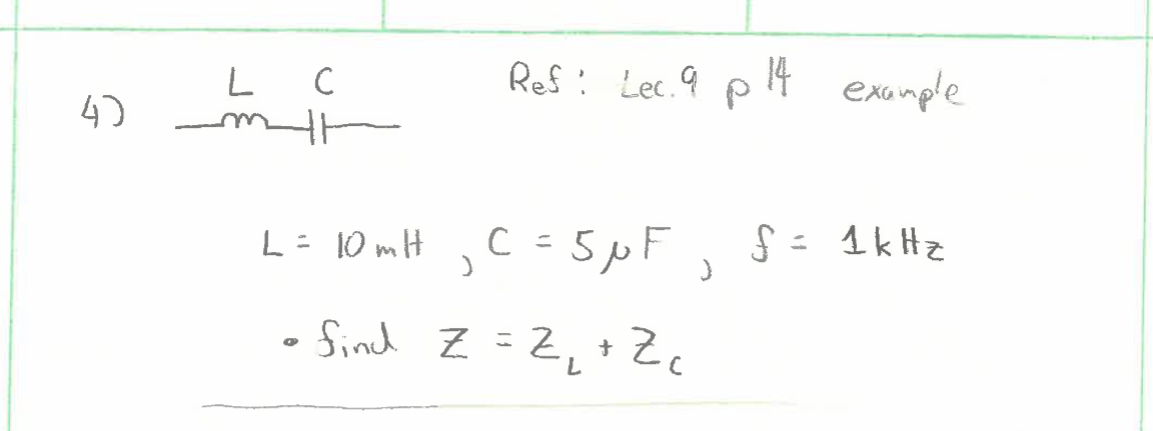 L C Ref: Lec. 9 p 14 example
4)
L = 10 mH, C = 5 μF, f = 1 kHz
• find Z = Z_L + Z_C